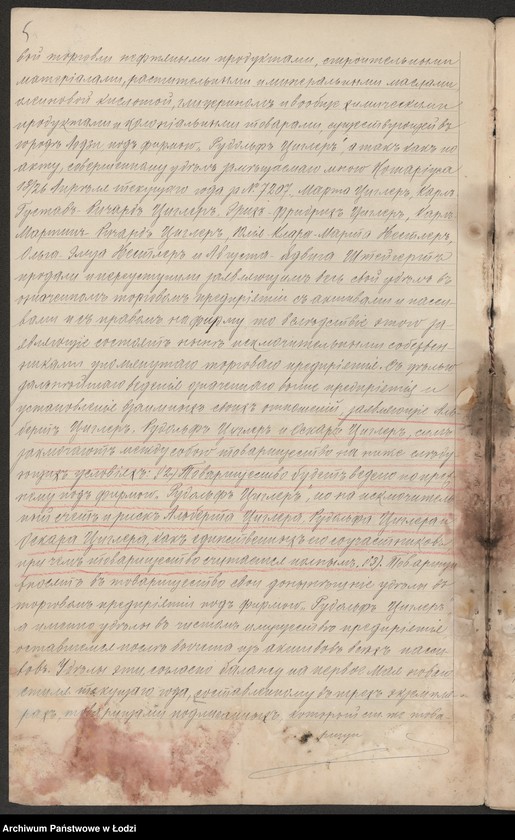 5
вой торговли нефтяными продуктами, строительными
матеріалами, растительными и минеральными маслами
олеиновой кислотой, глицериномъ и вообще химическими
продуктами и колоніальными товарами, существующей въ
городѣ Лодзи подъ фирмою „Рудольфъ Циглеръ“ а такъ какъ по
акту, совершенному у замѣщаемаго мною Нотаріуса
13/26 Апрѣля текущаго года за № 7207. Марта Циглеръ, Карлъ
Густавъ-Ричардъ Циглеръ, Эрихъ-Фридрихъ Циглеръ, Карлъ
Мартинъ-Ричардъ Циглеръ, Клара-Марта
Ольга-Элиза и Августа-Ядвига
продали и переуступили заявляющимъ весь свой удѣлъ въ
означенномъ торговомъ предпріятіи съ активами и пасси-
вами и съ правомъ на фирму то вслѣдствіе этого за-
являющіе состоятъ нынѣ исключительными собствен-
никами упомянутаго торговаго предпріятія. Съ цѣлью
дальнѣйшаго веденія означеннаго выше предпріятія и
установленія взаимныхъ своихъ отношеній, заявляющіе Аль-
бертъ Циглеръ, Рудольфъ Циглеръ и Оскаръ Циглеръ, симъ
заключаютъ между собою товарищество на ниже слѣду-
ющихъ условіяхъ: 2) Товарищество будетъ ведено по преж-
нему подъ фирмою „Рудольфъ Циглеръ“, но на исключитель-
ный счетъ и рискъ Альберта Циглера, Рудольфа Циглера и
Оскара Циглера, какъ единственныхъ его соучастниковъ
при чемъ товарищество считается полнымъ. 3) Товарищи
вносятъ въ товарищество свои донынѣшніе удѣлы въ
торговомъ предпріятіи подъ фирмою „Рудольфъ Циглеръ“
а именно удѣлы въ чистомъ имуществѣ предпріятія
оставшемся послѣ вычета изъ активовъ всѣхъ пасси-
вовъ. Удѣлы эти, согласно балансу на первое Мая новаго
стиля текущаго года, составленному въ трехъ экземпля-
рахъ, товарищами подписанныхъ, который ими же това-
рищи
Archiwum Państwowe w Łodzi